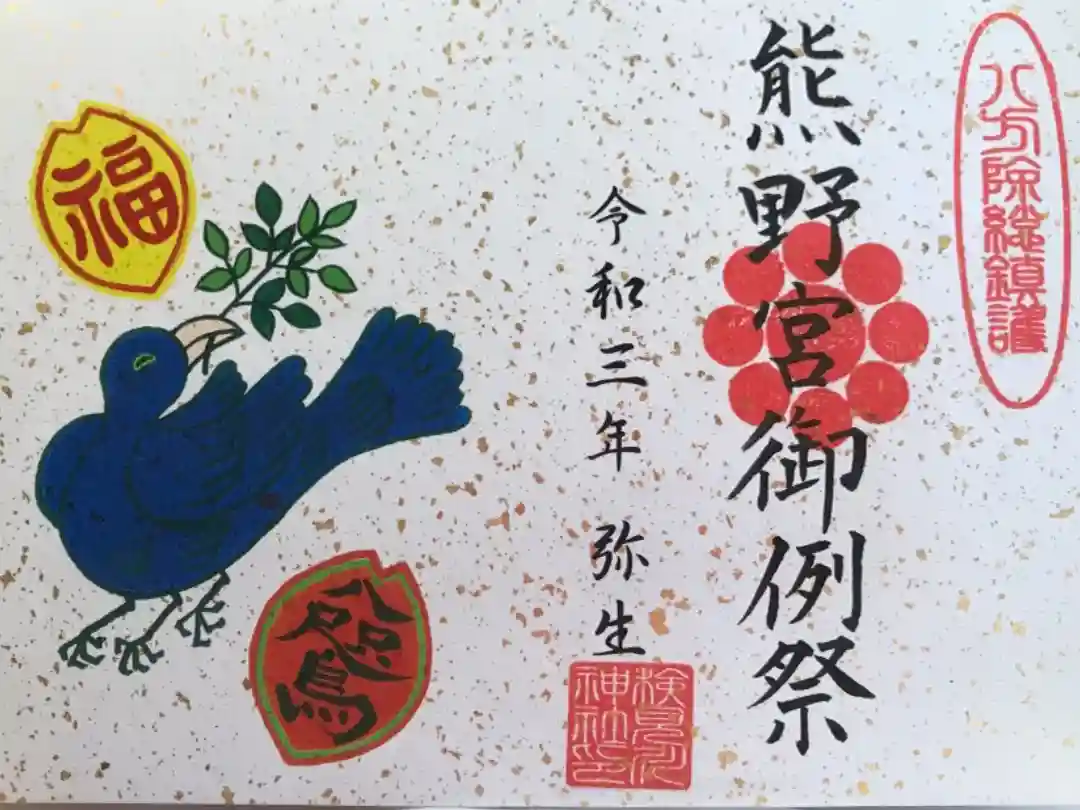 八方除総鎮護
熊野宮御例祭
令和三年 弥生
検見川
神社印
福